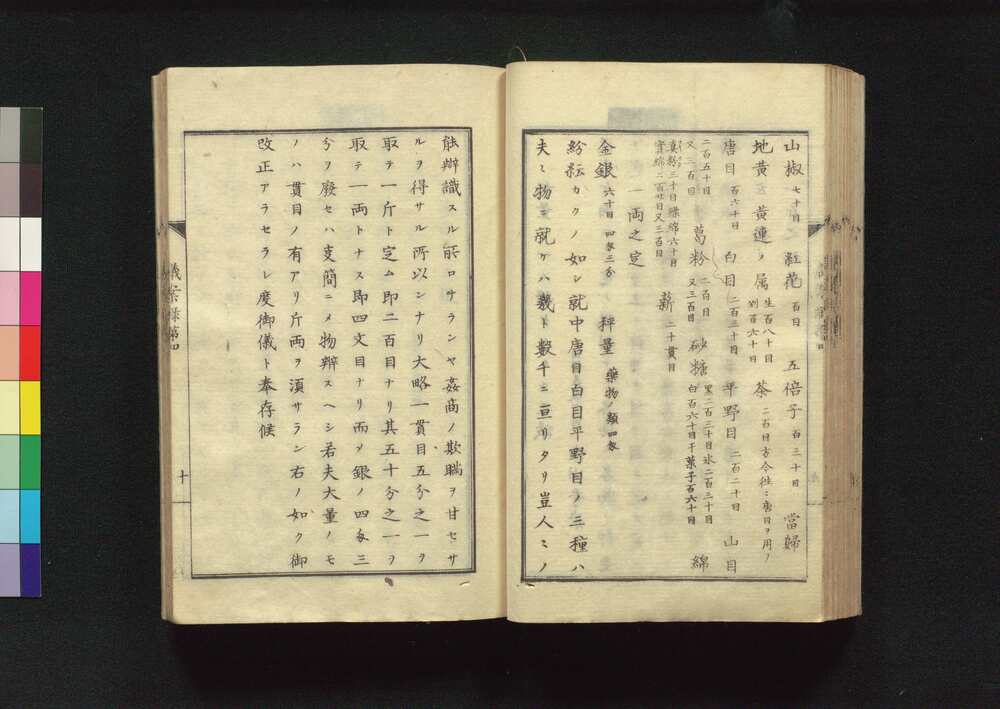 山椒 七十目 紅花 百目 五倍子 百三十目 當婦
地黄 黄連ノ属 生百八十目 刻百六十目 茶 二百目古今往〻唐目ヲ用ノ
唐目 百六十目 白目 二百三十目 平野目 二百二十目 山目
二百五十目 又三百目 葛粉 二百目 又三百目 砂糖 黒二百三十目氷二百三十目 白百六十目干菓子百六十目 綿
真綿三十目 繰綿六十目 實綿二百廿目又三百目 薪 二十貫目
一両之定
金銀 六十目 四匁三分 秤量 藥物ノ類四匁
紛紜カクノ如シ就中唐目白目平野目ノ三種ハ
夫〻物ニ就ケハ幾ト數千ニ亘リタリ豈人〻ノ
能辯識スル所ロサランヤ姦商ノ欺瞞ヲ甘セサ
ルヲ得サル所以ンナリ大略一貫目五分之一ヲ
取テ一斤ト定ム即二百目ナリ其五十分之一ヲ
取テ一両トナス即四文目ナリ而ソ銀ノ四匁三
分ヲ廢セハ支簡ニメ物辨スヘシ若夫大量ノモ
ノハ貫目ノ有アリ斤両ヲ湏サラン右ノ如ク御
改正アラセラレ度御儀ト奉存候
議案録第四
十